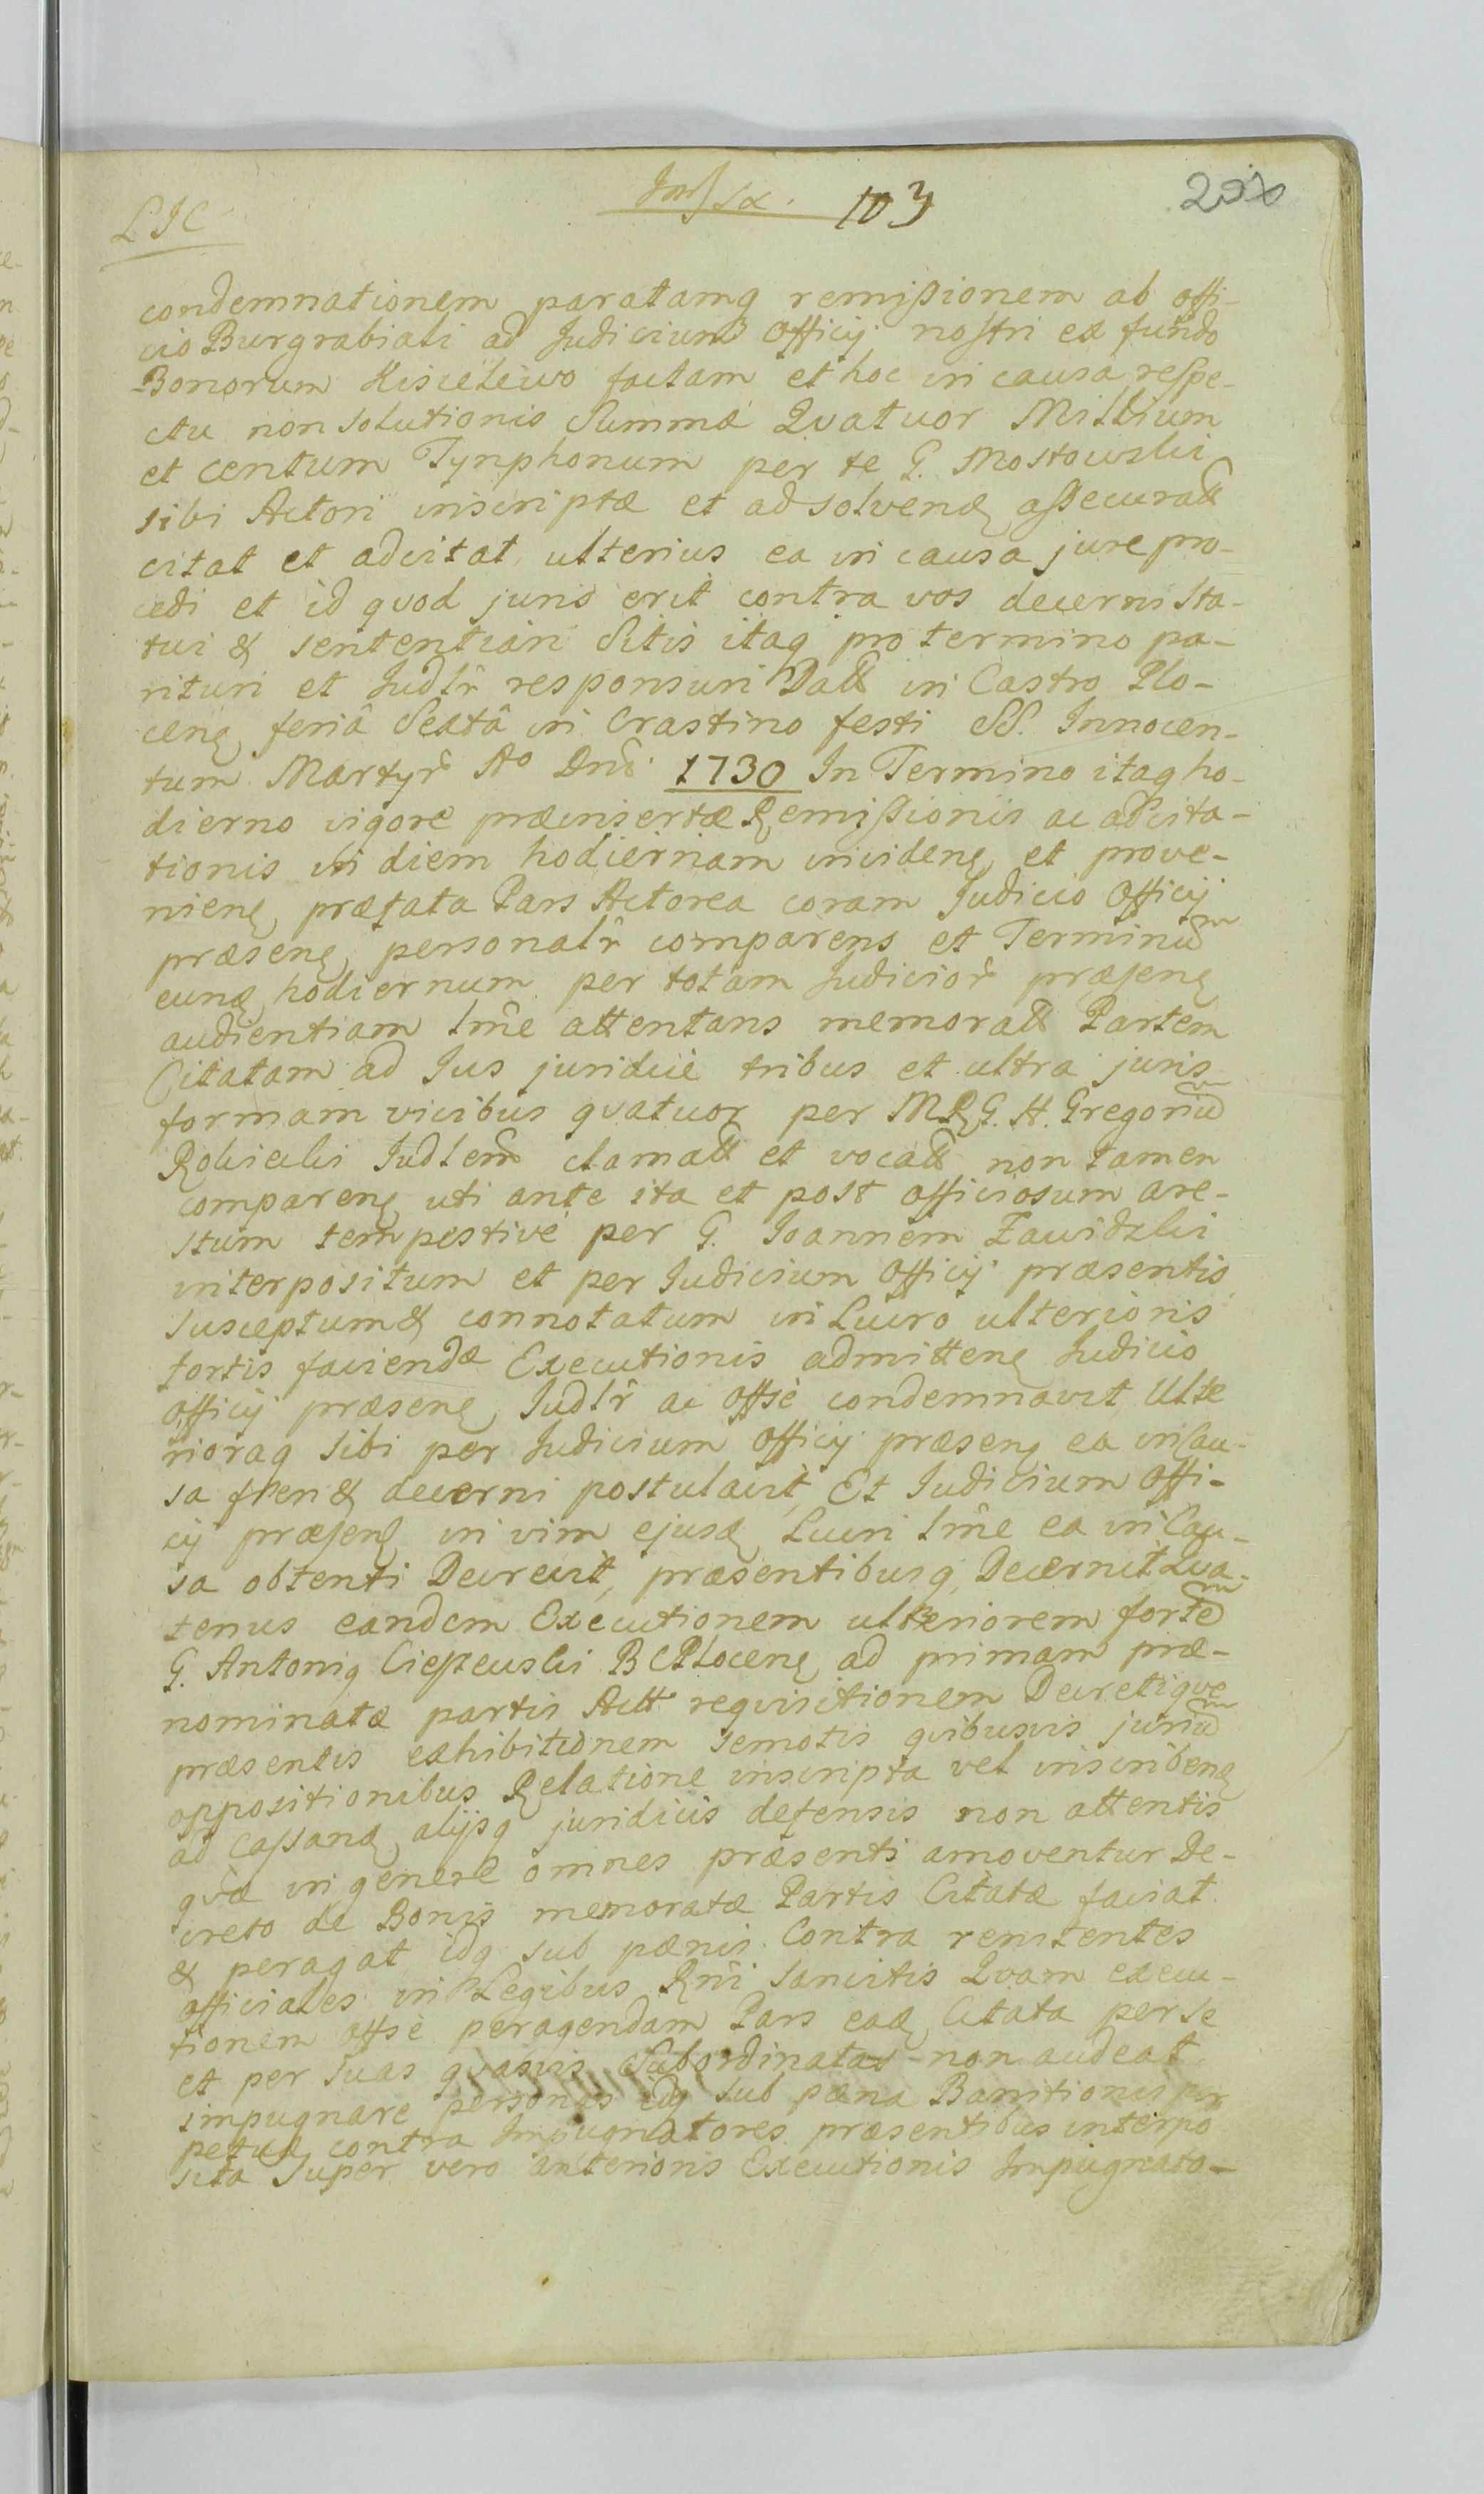 LJC 103
condemnationem paratamq remissionem ab offi-
cio Burgrabiali ad Judicium Officij nostri ex fundo
Bonorum Kisielewo factam et hoc in causa respe-
ctu non solutionis Summæ Qvatuor Millium
et centum Tynphonum per te G. Mostowski
sibi Actori inscriptæ et ad solvend assecuratt
citat et adcitat ulterius ea in causa jure pro-
cedi et id qvod juris erit contra vos decerni sta-
tui & sententiari Sitis itaq pro termino pa-
rituri et Judlr responsuri Datt in Castro Plo-
cen feriâ Sextâ in Crastino festi SS. Innocen-
tum Martyr Ao Dni 1730 In Termino itaq ho-
dierno vigore præinsertæ Remissionis ac adcita-
tionis in diem hodiernam inciden et prove-
nien præfata Pars Actorea coram Judicio Officij
præsen personalr comparens et Terminum
eund hodiernum per totam Judicior præsen
audientiam lme attentans memoratt Partem
Citatam ad Jus juridice tribus et ultra juris
formam vicibus qvatuor per MRG. H. Gregorium
Robicki Judlem clamatt et vocatt non tamen
comparen uti ante ita et post officiosum are-
stum tempestive per G. Joannem Zawidzki
interpositum et per Judicium Officij præsentis
susceptum & connotatum in Lucro ulterioris
fortis faciendæ Executionis admitten Judicio
Officij præsen Judlr ac Offse condemnavit Ulte
rioraq sibi per Judicium Officij præsen ea in Cau-
sa fieri & decerni postulavit Et Judicium Offi-
cij præsen in vim ejusd Lucri lme ea in Cau-
sa obtenti Decrevit, præsentibusq, Decernit Qva-
tenus eandem Executionem ulteriorem fortem
G. Antonig Ciepleuski BCPlocen ad primam præ-
nominatæ partis Actt reqvisitionem Decretiqve
præsentis exhibitionem semotis qvibusvis jurium
oppositionibus Relatione inscripta vel inscriben
ad Cassand alijsq juridicis defensis non attentis
qvæ in genere omnes præsenti amoventur De-
creto de Bonis memoratæ Partis Citatæ faciat
& peragat idq sub pænis Contra renitentes
officiales in Legibus Rni sancitis Qvam execu-
tionem offse peragendam Pars ead Citata per se
et per suas qvasvis Subordinatas non audeat
impugnare personas idq sub pæna Banitionis per
petuæ contra Impugnatores præsentibus interpo
sita Super vero anterioris Executionis Impugnato-